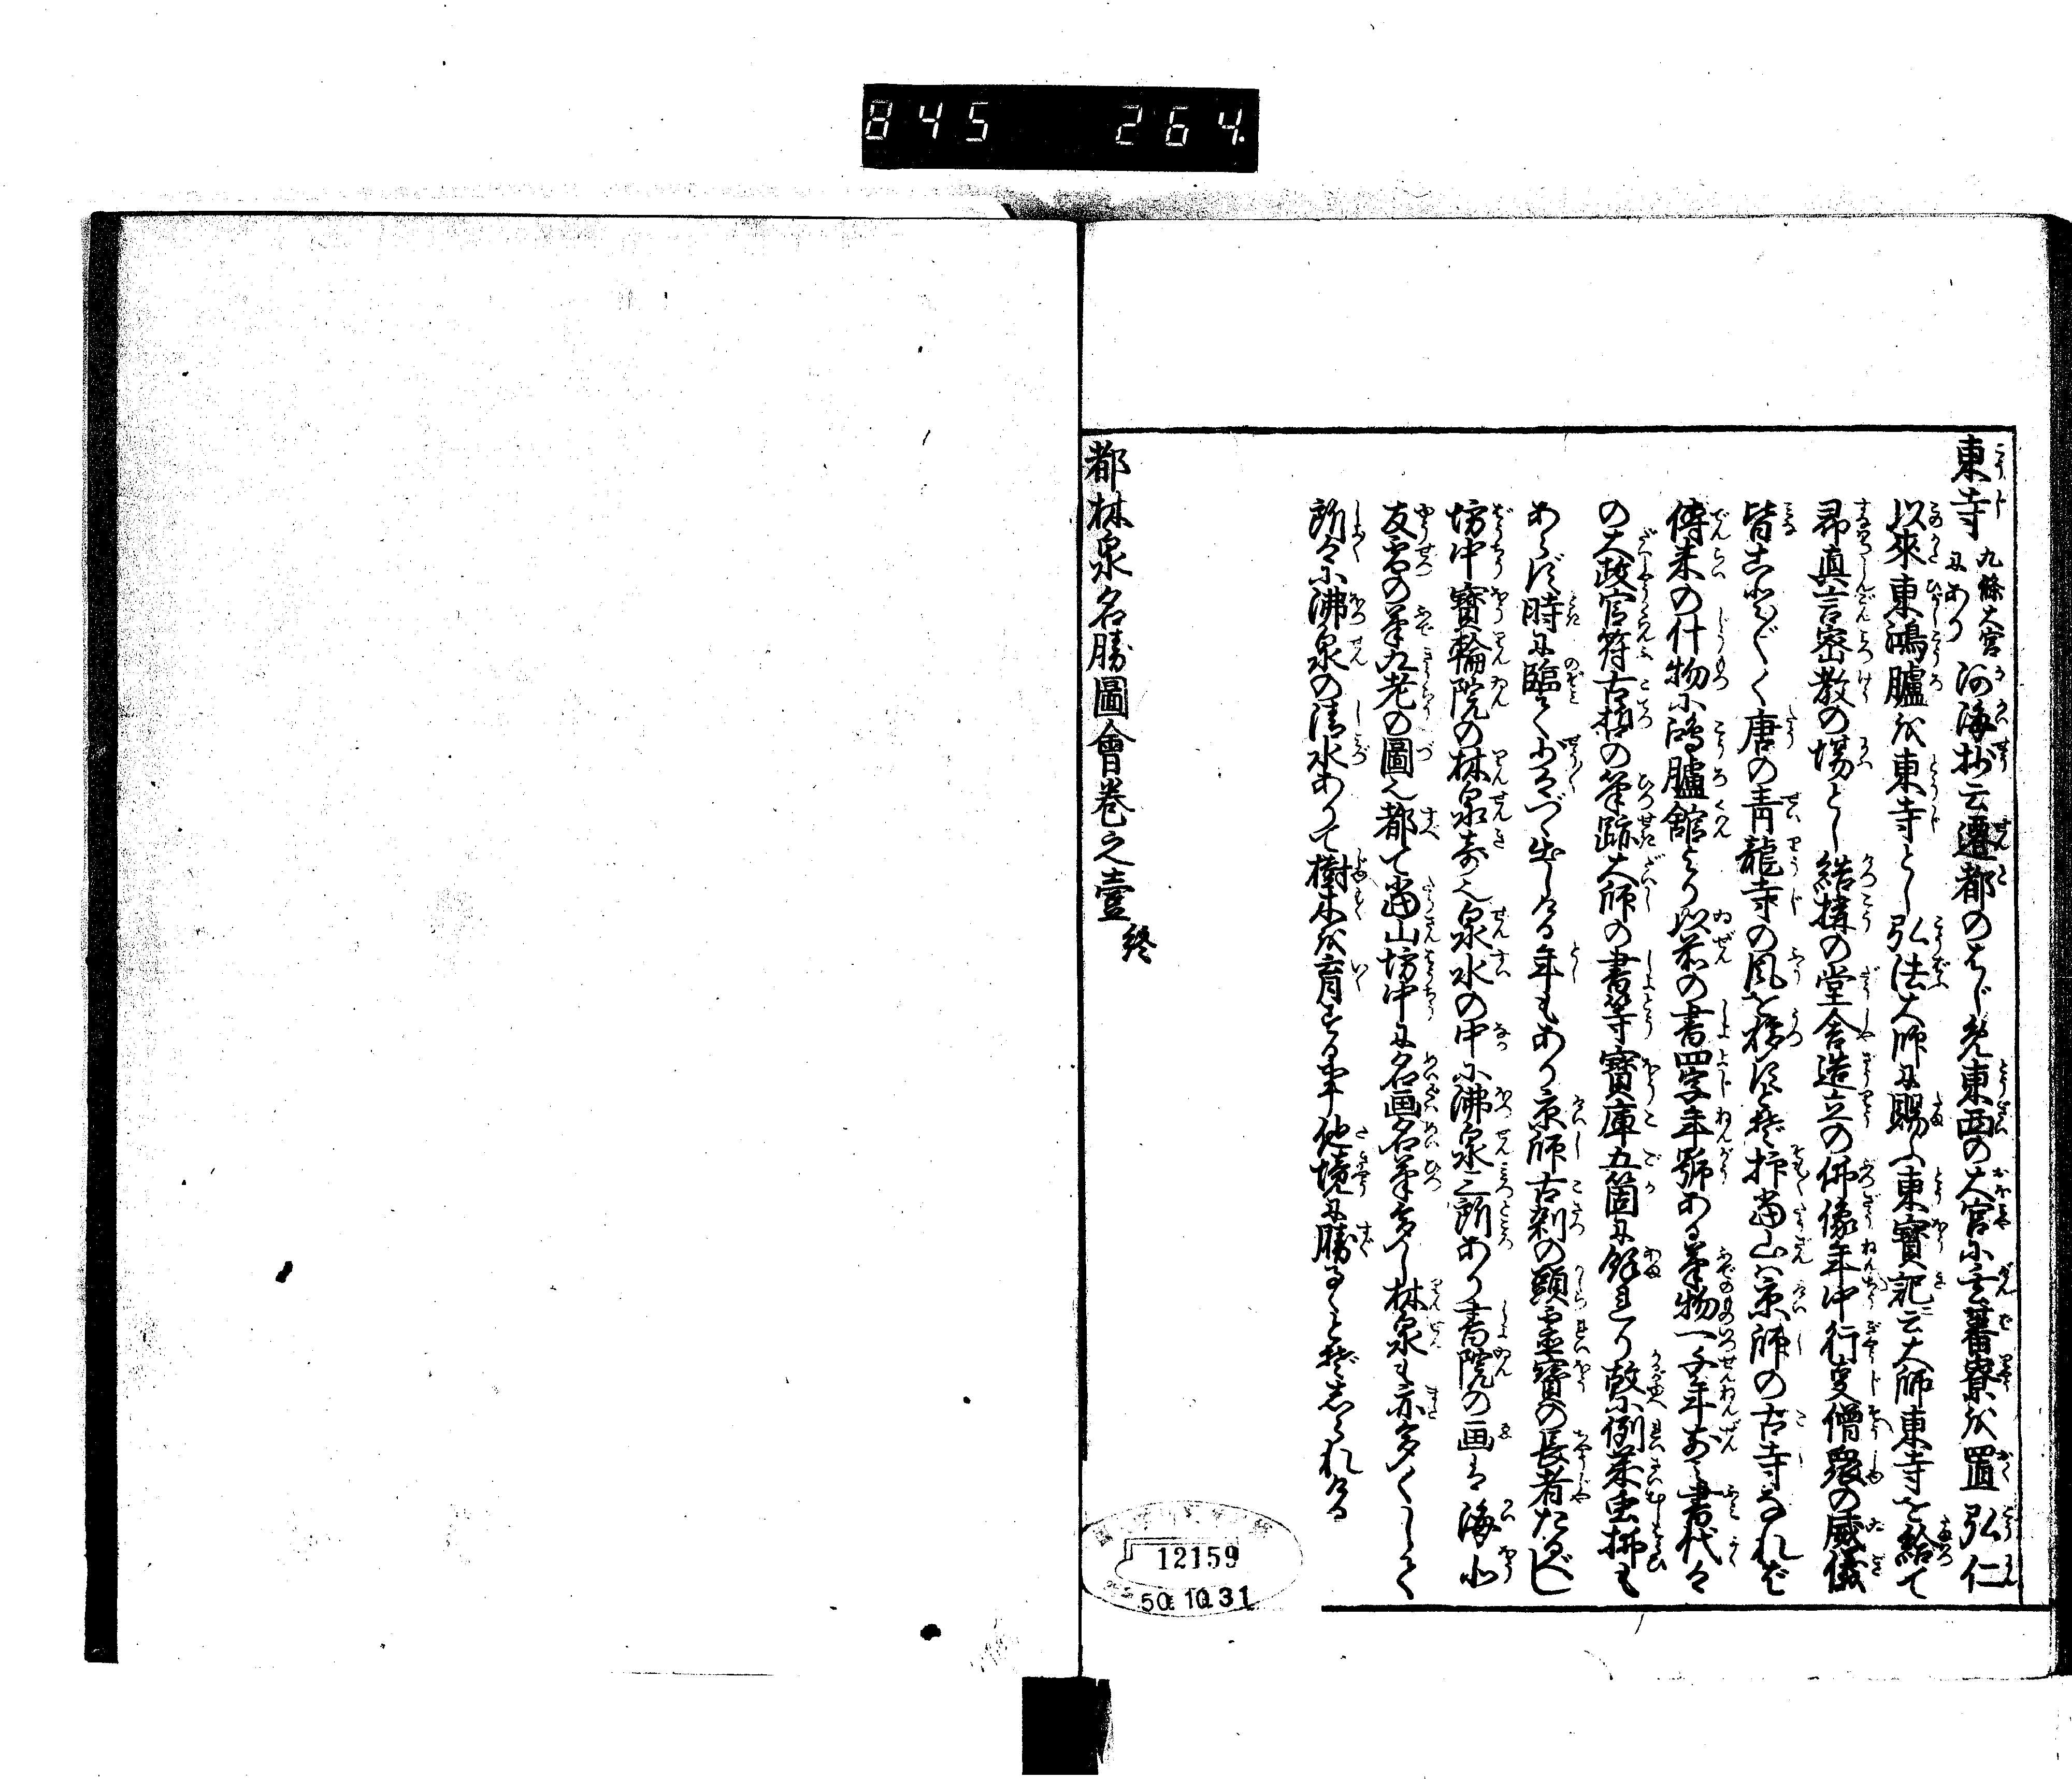 845 264
東寺 九條大宮にあり 河海抄云遷都のはじめ東西の大宮に玄蕃寮を置弘仁
以來東鴻臚を東寺とし弘法大師に賜ふ東寳記云大師東寺を給て
即真言密教の場とし結搆の堂舎造立の佛像年中行叓僧衆の威儀
皆ことごとく唐の青龍寺の風を移すとぞ抑當山は京師の古寺なれば
傳来の什物に鴻臚舘より以前の書四字年號ある筆物一千年前之書代々
の大政官符古哲の筆跡大師の書等寳庫五箇に餘れり
あらず時に臨て少々づゝ出しける年もあり京師古刹の頭霊寳の長者たるべし
坊中寳輪院の林泉奇也泉水の中に沸泉三所あり書院の画は海北
友雪の筆九老の圖也都て當山坊中に名画名筆多し林泉も亦多くして
所々に沸泉の清水ありて樹木を育する事他境に勝るゝとぞ志られける
都林泉名勝圖會巻之壹終
12159
50.10.31